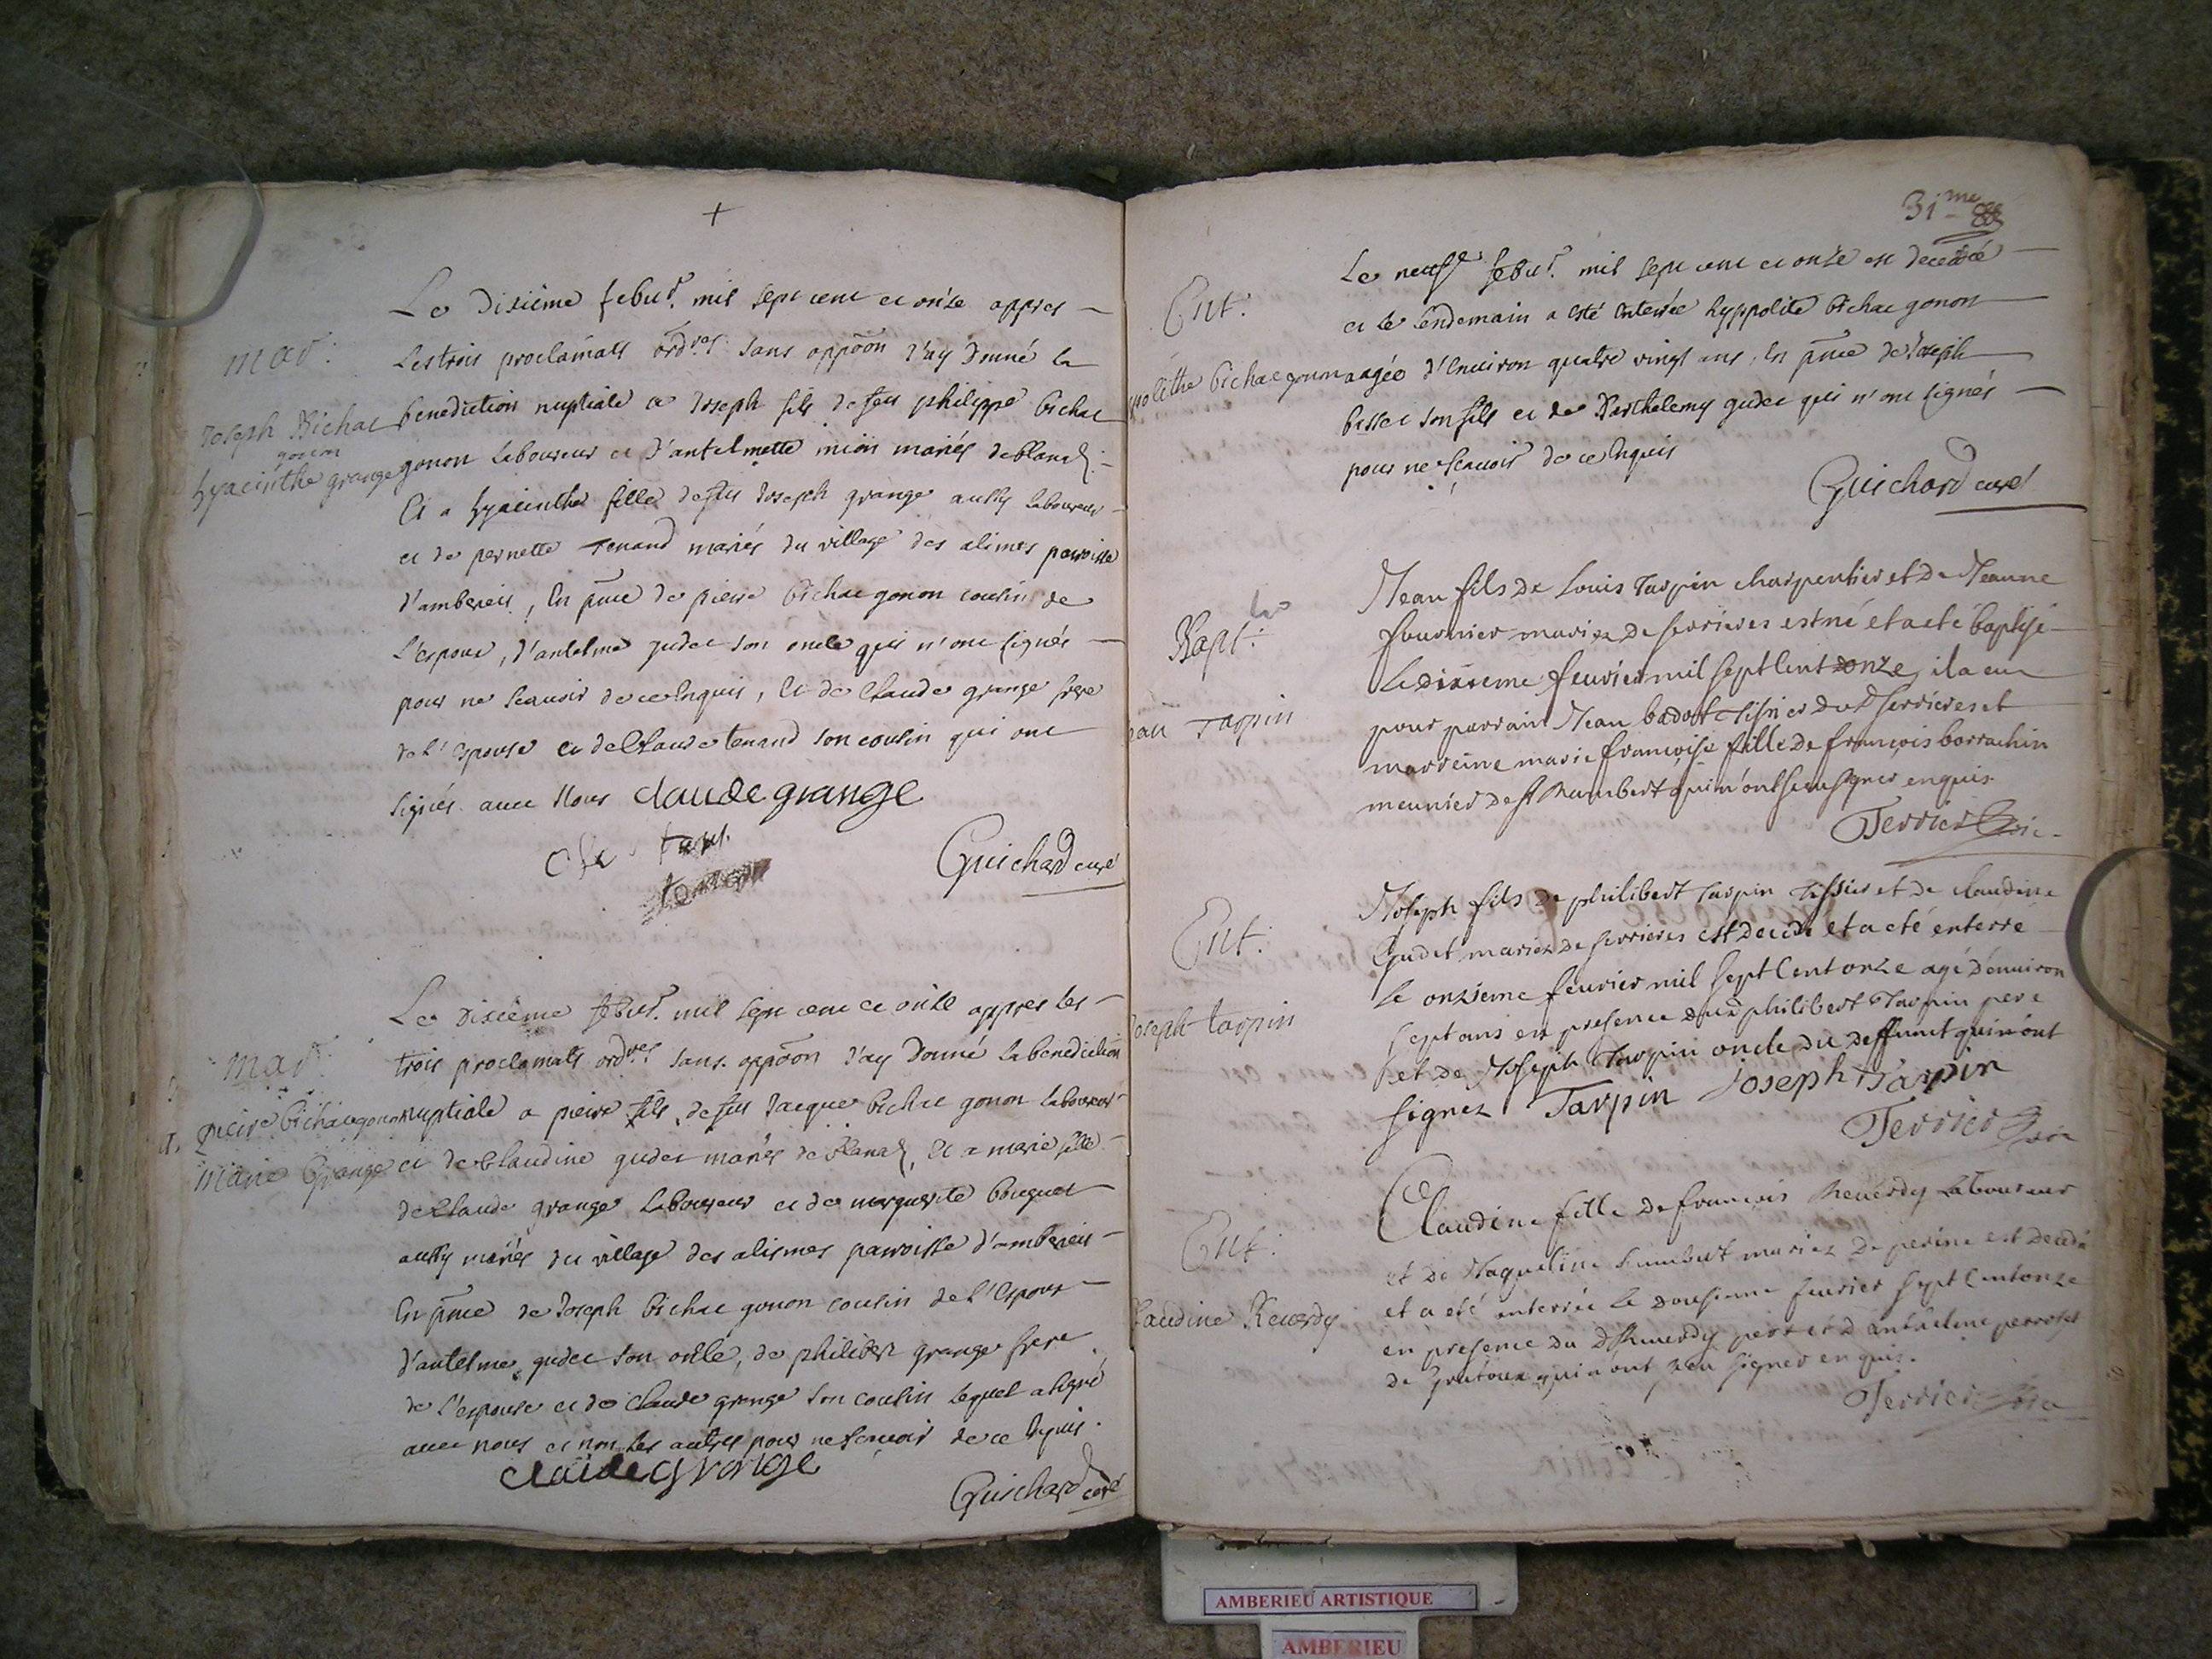 +
Le Disiême febur. mil sept cent et onse appres
mar:
les trois proclamats ordres sans oppoon J'ay Donné la
Joseph Bichat gonon
benediction nuptiale a Joseph fils de feu philippe bichat
hyacinthe grange
gonon laboureur et d'antelmette mion mariés de blanaz
Et a hyacinthe fille de feu Joseph grange aussy laboureur
et de pernette tenand mariés du village des alimes parroisse
d'ambereis, En pnce de pierre bichat gonon cousin de
l'espoux, d'antelme gudet son oncle qui n'ont signés
pour ne scauoir de ce Enquis, Et de Claude grange frere
de l'espouse et de Claude tenand son cousin qui ont
signés auec Nous claude grange
Guichard curé
Le Disiême febur. mil sept cent et onse appres les
mar:
trois proclamats ordres sans oppoon J'ay Donné la benediction
pierre bichat gonon
nuptiale a pierre fils de feu Jacque bichat gonon laboureur
marie Grange
et de Claudine gudet mariés de blanaz, Et a marie fille
de Claude grange laboureur et de marguerite bouguet
aussy mariés du village des alismes parroisse d'ambereis
En pnce de Joseph bichat gonon cousin de l'Espoux
d'antelme gudet son oncle, de philibert grange frere
de l'espouse et de Claude grange son cousin lequel a signé
auec nous et non les autres pour ne scauoir de ce Enquis.
claude grange
Guichard curé
31me
Ent:
Le neufe febur. mil sept cent et onse est decedée
et le lendemain a esté enterrée hyppolite bichat gonon
polithe bichat gonon
aagée d'Enuiron quatre vingt ans, En pnce de Joseph
besset son fils et de Barthelemy gudet qui n'ont signés
pour ne scauoir de ce Enquis
Guichard curé
Jean fils de Louis Tarpin charpentier et de Jeanne
Bapt:
fournier mariez de serrieres est né et a eté baptisé
Le dixieme feurier mil sept Cent onze, il a eu
ean Tarpin
pour parrain Jean badot Tissier du d serrieres et
marreine marie françoise fille de françois borrachin
meunier de st Rambert qui n'ont sceu signer enquis.
Terrier vic
Joseph fils de philibert Tarpin Tissier et de claudine
Ent:
Gudet mariez de serrieres est decedé et a eté enterré
le onzieme feurier mil sept Cent onze agé d'enuiron
Joseph tarpin
sept ans en presence dud philibert Tarpin pere
et de Joseph Tarpin oncle du deffunct qui ont
signez Tarpin Joseph Tarpin
Terrier vic
Claudine fille de françois Reuerdy Laboureur
Ent:
et de Jaqueline humbert mariez de perine est decedée
et a eté enterrée le dousieme feurier sept Cent onze
laudine Reuerdy
en presence du d Reuerdy pere et d'anthelme perroset
de qui n'ont sceu signer enquis.
Terrier vic
AMBERIEU ARTISTIQUE
AMBERIEU